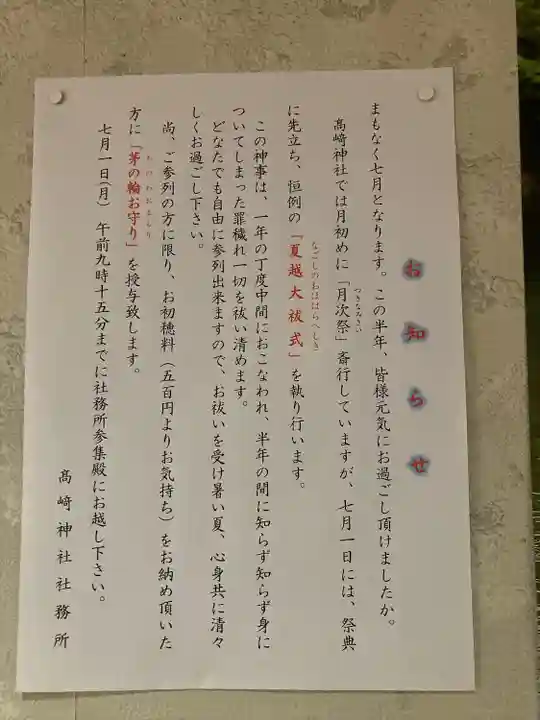 お知らせ
まもなく七月となります。この半年、皆様元気にお過ごし頂けましたか。
髙﨑神社では月初めに「月次祭」斎行していますが、七月一日には、祭典
つきなみさい
に先立ち、恒例の「夏越大祓式」を執り行います。
なごしのおおはらへしき
この神事は、一年の丁度中間におこなわれ、半年の間に知らず知らず身に
ついてしまった罪穢れ一切を祓い清めます。
どなたでも自由に参列出来ますので、お祓いを受け暑い夏、心身共に清々
しくお過ごし下さい。
尚、ご参列の方に限り、お初穂料（五百円よりお気持ち）をお納め頂いた
方に「茅の輪お守り」を授与致します。
ちのわおまもり
七月一日(月)　午前九時十五分までに社務所参集殿にお越し下さい。
髙﨑神社社務所